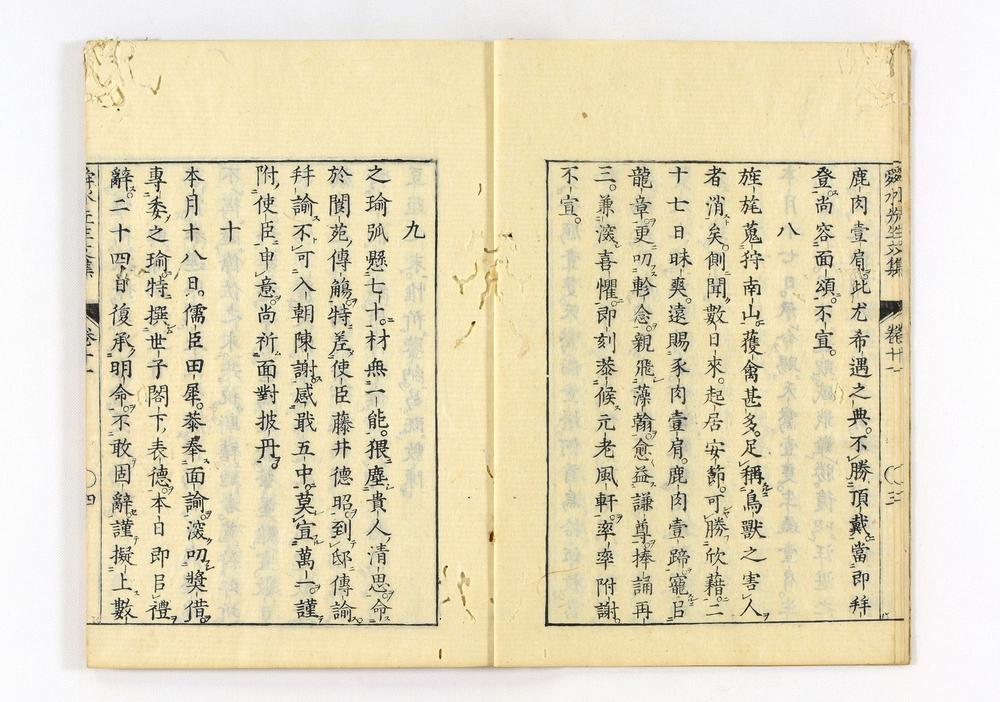 鹿肉壹肩。此尤希遇之典。不勝頂戴。當即拜
登。尚容面頌。不宣。
八
旌旄蒐狩南山。獲禽甚多。足稱鳥獸之害人
者消矣。側聞數日來。起居安節。可勝欣藉。二
十七日昧爽。遠賜豕肉壹肩。鹿肉壹蹄。寵㠯
龍章。更叨軫念。親飛藻翰。愈益謙尊。捧誦再
三。兼深喜懼。即刻恭候元老風軒。率率附謝。
不宣。
舜水先生文集
卷十一
三
九
之瑜弧懸七十。材無一能。猥塵貴人清思。命
於閬苑。傳觴。特差使臣藤井德昭。到邸傳諭。
拜諭不可入朝陳謝。感戢五中。莫宣萬一。謹
附使臣申意。尚祈面對披丹。
十
本月十八日。儒臣田犀。恭奉面諭。深叨獎借。
專委之瑜。特撰世子閣下。表德。本日即㠯禮
辭。二十四日復承明命。不敢固辭。謹擬上數
舜水先生文集
卷十一
四